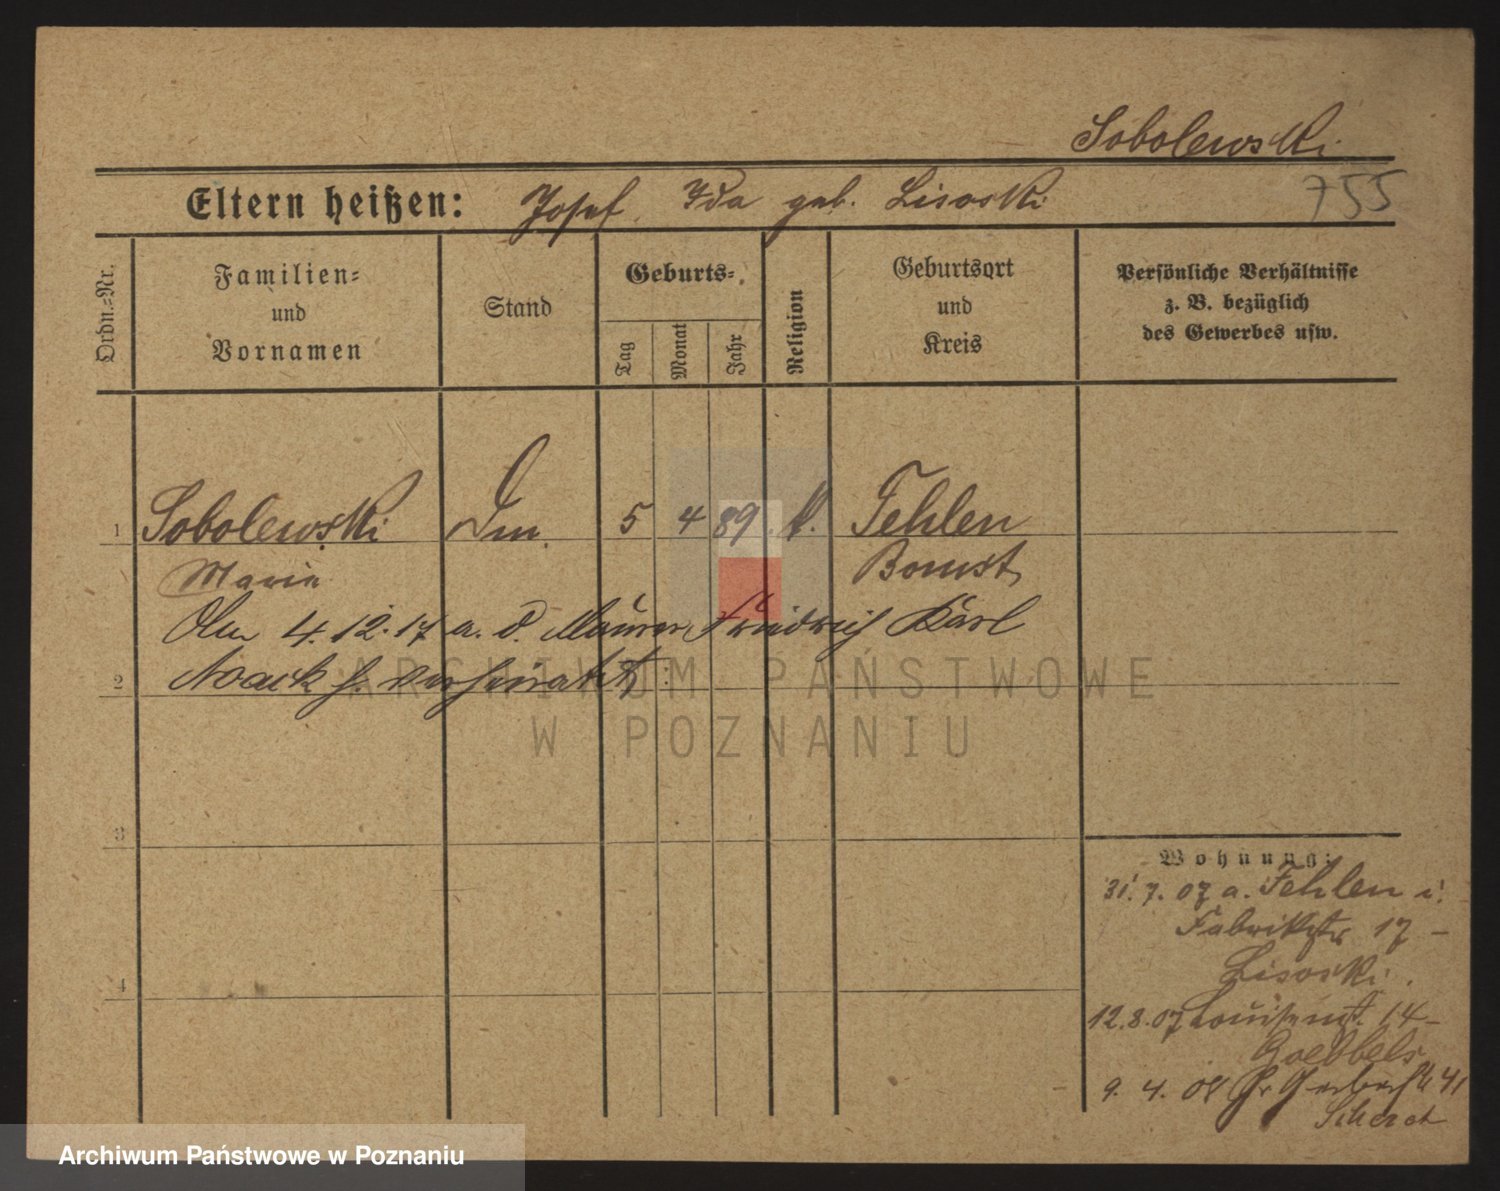 Sobolewski
Eltern heißen: Josef, Ida geb. Lisoski
755
Ordn.-Nr.
Familien-
und
Vornamen
Stand
Geburts-
Tag
Monat
Jahr
Religion
Geburtsort
und
Kreis
Persönliche Verhältnisse
z. B. bezüglich
des Gewerbes usw.
1 Sobolewski 5 4 89 k. Fehlen
Marie Bomst
Am 4.12.17 a. d. Maurer Friedrich Karl
Noack h. verheiratet
2
3
4
Wohnung:
31.7.07 a. Fehlen i.
Fabrikstr 17 –
Lisoski.
12.8.07 Louisenst. 14 –
Goebbels
9. 4. 08 Gr Gerberst 41
Scherek
ARCHIWUM PAŃSTWOWE
W POZNANIU
Archiwum Państwowe w Poznaniu